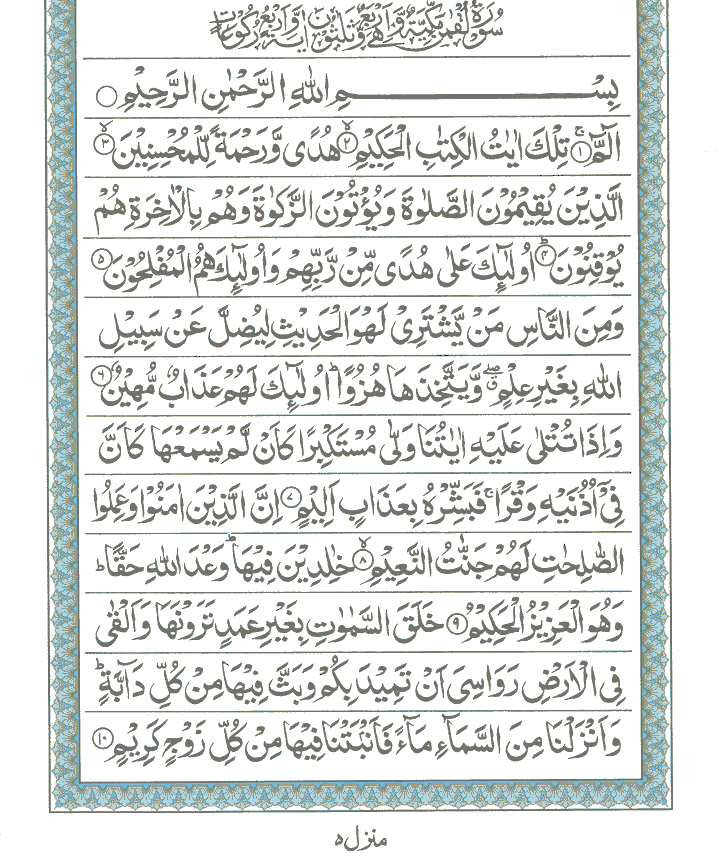 سُوْرَةُ لُقْمٰنَ مَكِّيَّةٌ وَّهِيَ اَرْبَعٌ وَّثَلٰثُوْنَ اٰيَةً وَّاَرْبَعُ رُكُوْعَاتٍ
بِسْمِ اللهِ الرَّحْمٰنِ الرَّحِيْمِ ○
الٓمّٓ ۚ﴿۱﴾ تِلْكَ اٰيٰتُ الْكِتٰبِ الْحَكِيْمِ ۙ﴿۲﴾ هُدًى وَّرَحْمَةً لِّلْمُحْسِنِيْنَ ۙ﴿۳﴾
الَّذِيْنَ يُقِيْمُوْنَ الصَّلٰوةَ وَيُؤْتُوْنَ الزَّكٰوةَ وَهُمْ بِالْاٰخِرَةِ هُمْ
يُوْقِنُوْنَ ؕ﴿۴﴾ اُولٰٓئِكَ عَلٰى هُدًى مِّنْ رَّبِّهِمْ وَاُولٰٓئِكَ هُمُ الْمُفْلِحُوْنَ ﴿۵﴾
وَمِنَ النَّاسِ مَنْ يَّشْتَرِيْ لَهْوَ الْحَدِيْثِ لِيُضِلَّ عَنْ سَبِيْلِ
اللهِ بِغَيْرِ عِلْمٍ ۖق وَّيَتَّخِذَهَا هُزُوًا ؕ اُولٰٓئِكَ لَهُمْ عَذَابٌ مُّهِيْنٌ ﴿۶﴾
وَاِذَا تُتْلٰى عَلَيْهِ اٰيٰتُنَا وَلّٰى مُسْتَكْبِرًا كَاَنْ لَّمْ يَسْمَعْهَا كَاَنَّ
فِيْٓ اُذُنَيْهِ وَقْرًا ۚ فَبَشِّرْهُ بِعَذَابٍ اَلِيْمٍ ﴿۷﴾ اِنَّ الَّذِيْنَ اٰمَنُوْا وَعَمِلُوا
الصّٰلِحٰتِ لَهُمْ جَنّٰتُ النَّعِيْمِ ۙ﴿۸﴾ خٰلِدِيْنَ فِيْهَا ؕ وَعْدَ اللهِ حَقًّا ؕ
وَهُوَ الْعَزِيْزُ الْحَكِيْمُ ﴿۹﴾ خَلَقَ السَّمٰوٰتِ بِغَيْرِ عَمَدٍ تَرَوْنَهَا وَاَلْقٰى
فِي الْاَرْضِ رَوَاسِيَ اَنْ تَمِيْدَ بِكُمْ وَبَثَّ فِيْهَا مِنْ كُلِّ دَآبَّةٍ ؕ
وَاَنْزَلْنَا مِنَ السَّمَآءِ مَآءً فَاَنْۢبَتْنَا فِيْهَا مِنْ كُلِّ زَوْجٍ كَرِيْمٍ ﴿۱۰﴾
منزل ۵